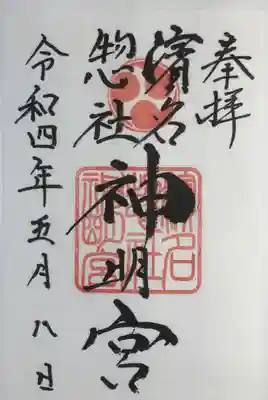 奉拝
濱名
惣社
神明宮
令和四年五月八日